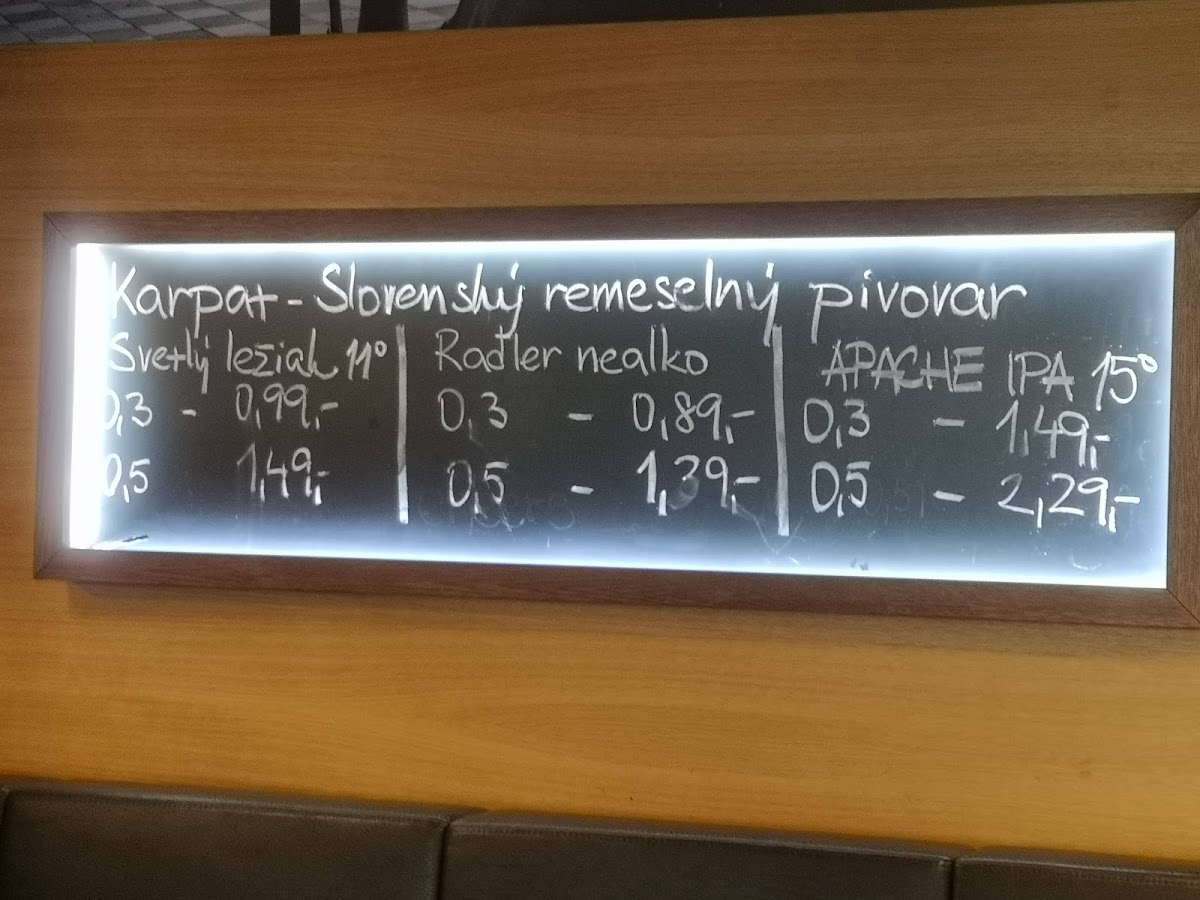 Karpat - Slovenský remeselný pivovar
Svetlý ležiak 11°
0,3 - 0,99,-
0,5 1,49,-
Raďler nealko
0,3 - 0,89,-
0,5 - 1,39,-
APACHE IPA 15°
0,3 - 1,49,-
0,5 - 2,29,-